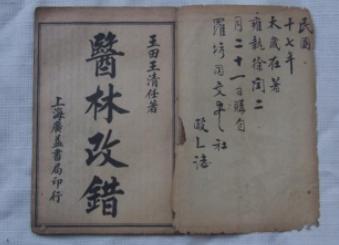 民國
十七年
太歲在著
雍執徐閏二
月二十一日購自
羅同文書社
玉田王清任著
醫林改錯
上海廣益書局印行